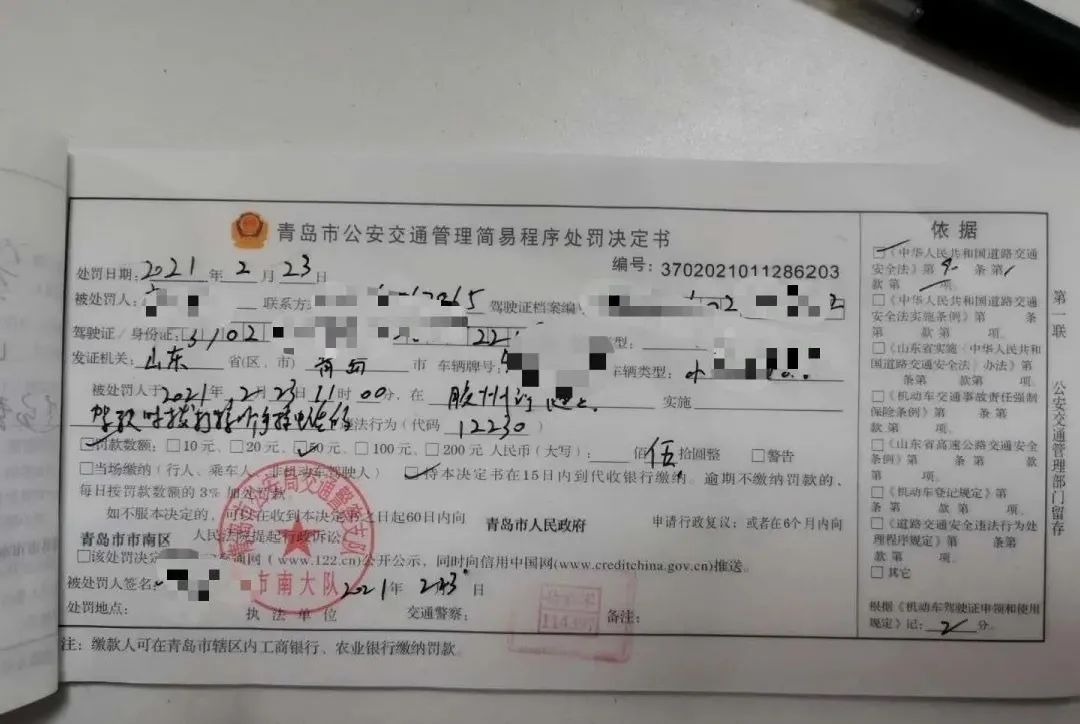 青岛市公安交通管理简易程序处罚决定书
编号：3702021011286203
处罚日期：2021年2月23日
被处罚人： 联系方 驾驶证档案编
驾驶证/身份证：
发证机关：山东省(区、市) 市 车辆牌号： 车辆类型：
被处罚人于2021年2月23日11时00分，在 胶州 实施
驾驶时拨打接听手持电话的 违法行为（代码 12230 ）
罚款数额：□10元、□20元、□50元、□100元、□200元 人民币（大写）： 佰 伍 拾圆整 □警告
□当场缴纳（行人、乘车人、非机动车驾驶人） □持本决定书在15日内到代收银行缴纳。逾期不缴纳罚款的、
每日按罚款数额的3%加处罚款。
如不服本决定的，可以在收到本决定书之日起60日内向 青岛市人民政府 申请行政复议；或者在6个月内向
青岛市市南区 人民法院提起行政诉讼
□该处罚决定 网（www.122.cn)公开公示，同时向信用中国网(www.creditchina.gov.cn)推送。
被处罚人签名： 2021年2月23日
处罚地点： 执法单位 交通警察： 备注：
市南大队
注：缴款人可在青岛市辖区内工商银行、农业银行缴纳罚款
依据
□《中华人民共和国道路交通
安全法》第 条第
款第 项。
□《中华人民共和国道路交通
安全法实施条例》第 条
第 款 第 项。
□《山东省实施〈中华人民共和
国道路交通安全法〉办法》第
条第 款第 项。
□《机动车交通事故责任强制
保险条例》第 条第
款第 项。
□《山东省高速公路交通安全
条例》第 条第 款
第 项。
□《机动车登记规定》第
条第 款第 项。
□《道路交通安全违法行为处
理程序规定》第 条第
款第 项。
□其它
根据《机动车驾驶证申领和使用
规定》记：2分。
第一联
公安交通管理部门留存